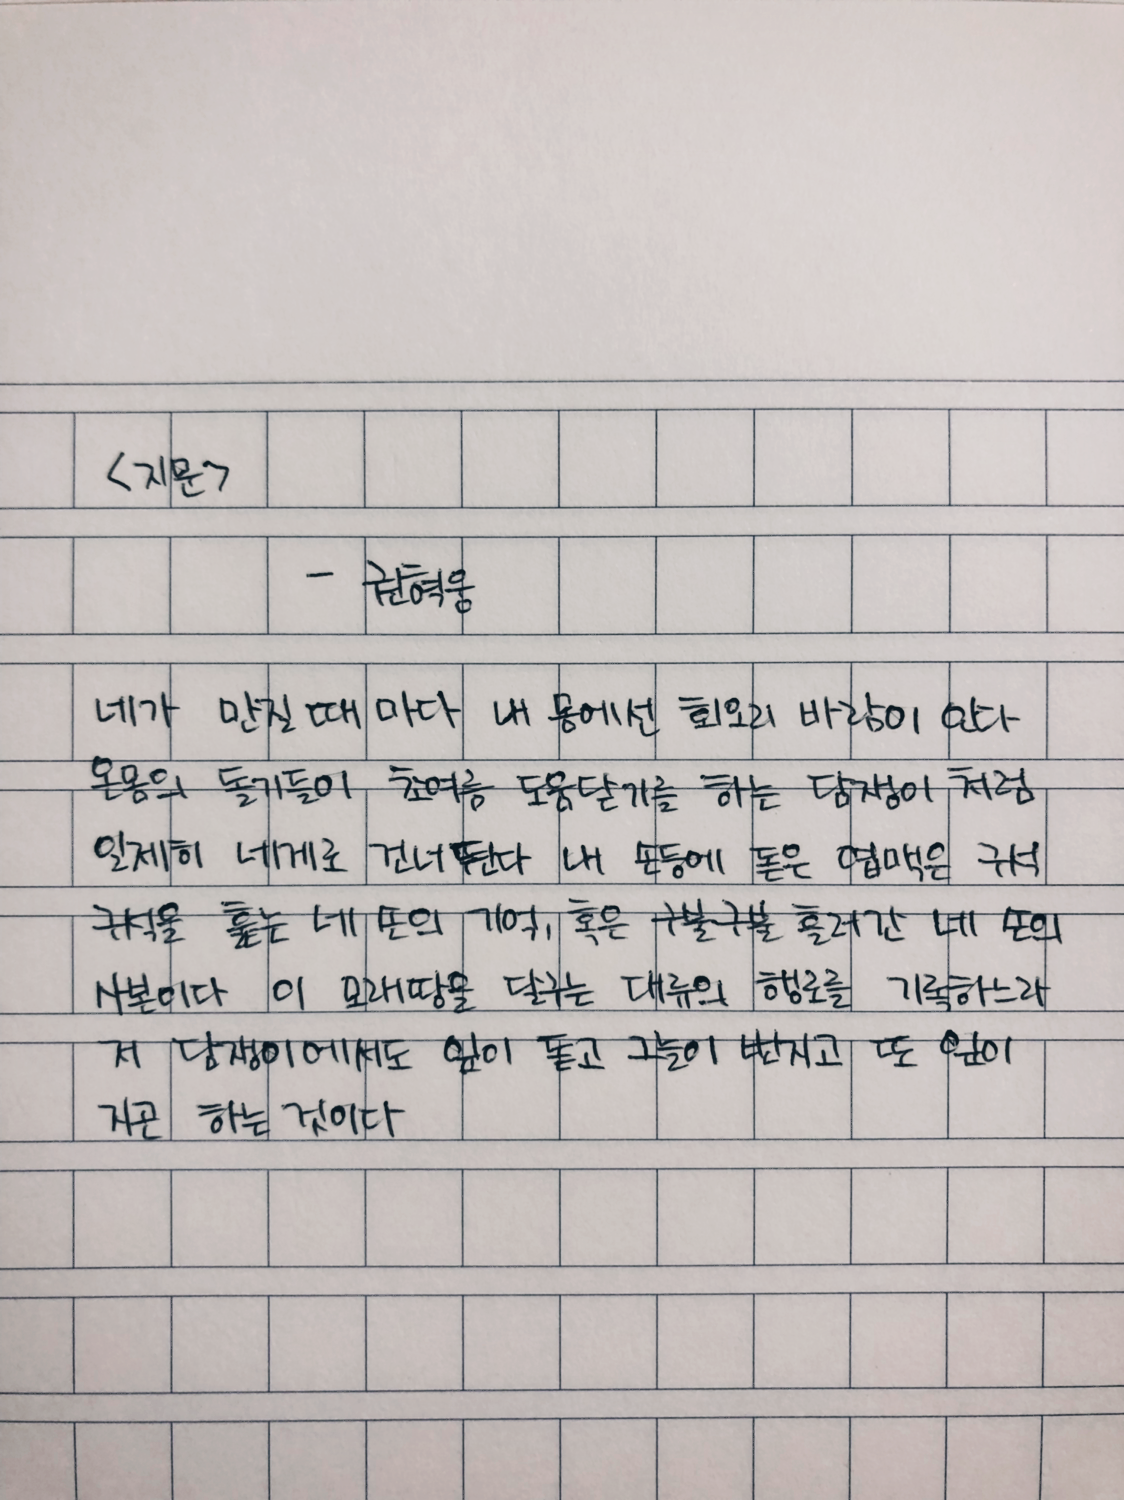 <지문>
- 권혁웅
네가 만질 때 마다 내 몸에선 회오리 바람이 인다
온몸의 돌기들이 초여름 도움닫기를 하는 담쟁이 처럼
일제히 네게로 건너뛴다 내 손등에 돋은 엽맥은 구석
구석을 훑는 네 손의 기억, 혹은 구불구불 흘러간 네 손의
사본이다 이 모래땅을 달구는 대류의 행로를 기록하느라
저 담쟁이에서도 잎이 돋고 그늘이 번지고 또 잎이
지곤 하는 것이다